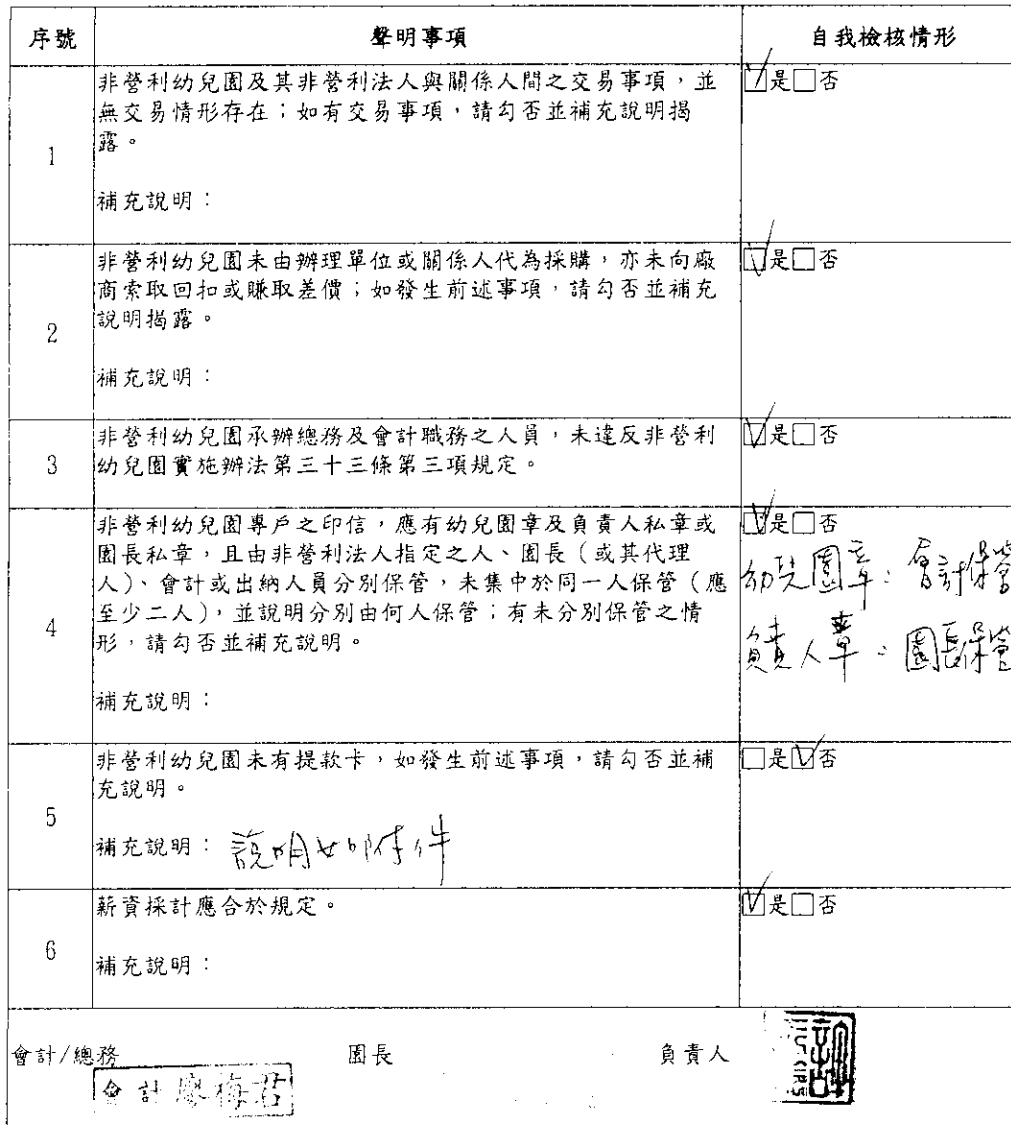 序號 聲明事項 自我檢核情形
1
非營利幼兒園及其非營利法人與關係人間之交易事項，並
無交易情形存在；如有交易事項，請勾否並補充說明揭
露。
補充說明：
☑是☐否
2
非營利幼兒園未由辦理單位或關係人代為採購，亦未向廠
商索取回扣或賺取差價；如發生前述事項，請勾否並補充
說明揭露。
補充說明：
☑是☐否
3
非營利幼兒園承辦總務及會計職務之人員，未違反非營利
幼兒園實施辦法第三十三條第三項規定。
☑是☐否
4
非營利幼兒園專戶之印信，應有幼兒園章及負責人私章或
園長私章，且由非營利法人指定之人、園長（或其代理
人）、會計或出納人員分別保管，未集中於同一人保管（應
至少二人），並說明分別由何人保管；有未分別保管之情
形，請勾否並補充說明。
補充說明：
☑是☐否
幼兒園章：會計保管
負責人章：園長保管
5
非營利幼兒園未有提款卡，如發生前述事項，請勾否並補
充說明。
補充說明：說明如附件
☐是☑否
6
薪資採計應合於規定。
補充說明：
☑是☐否
會計/總務 園長 負責人
會計廖梅君